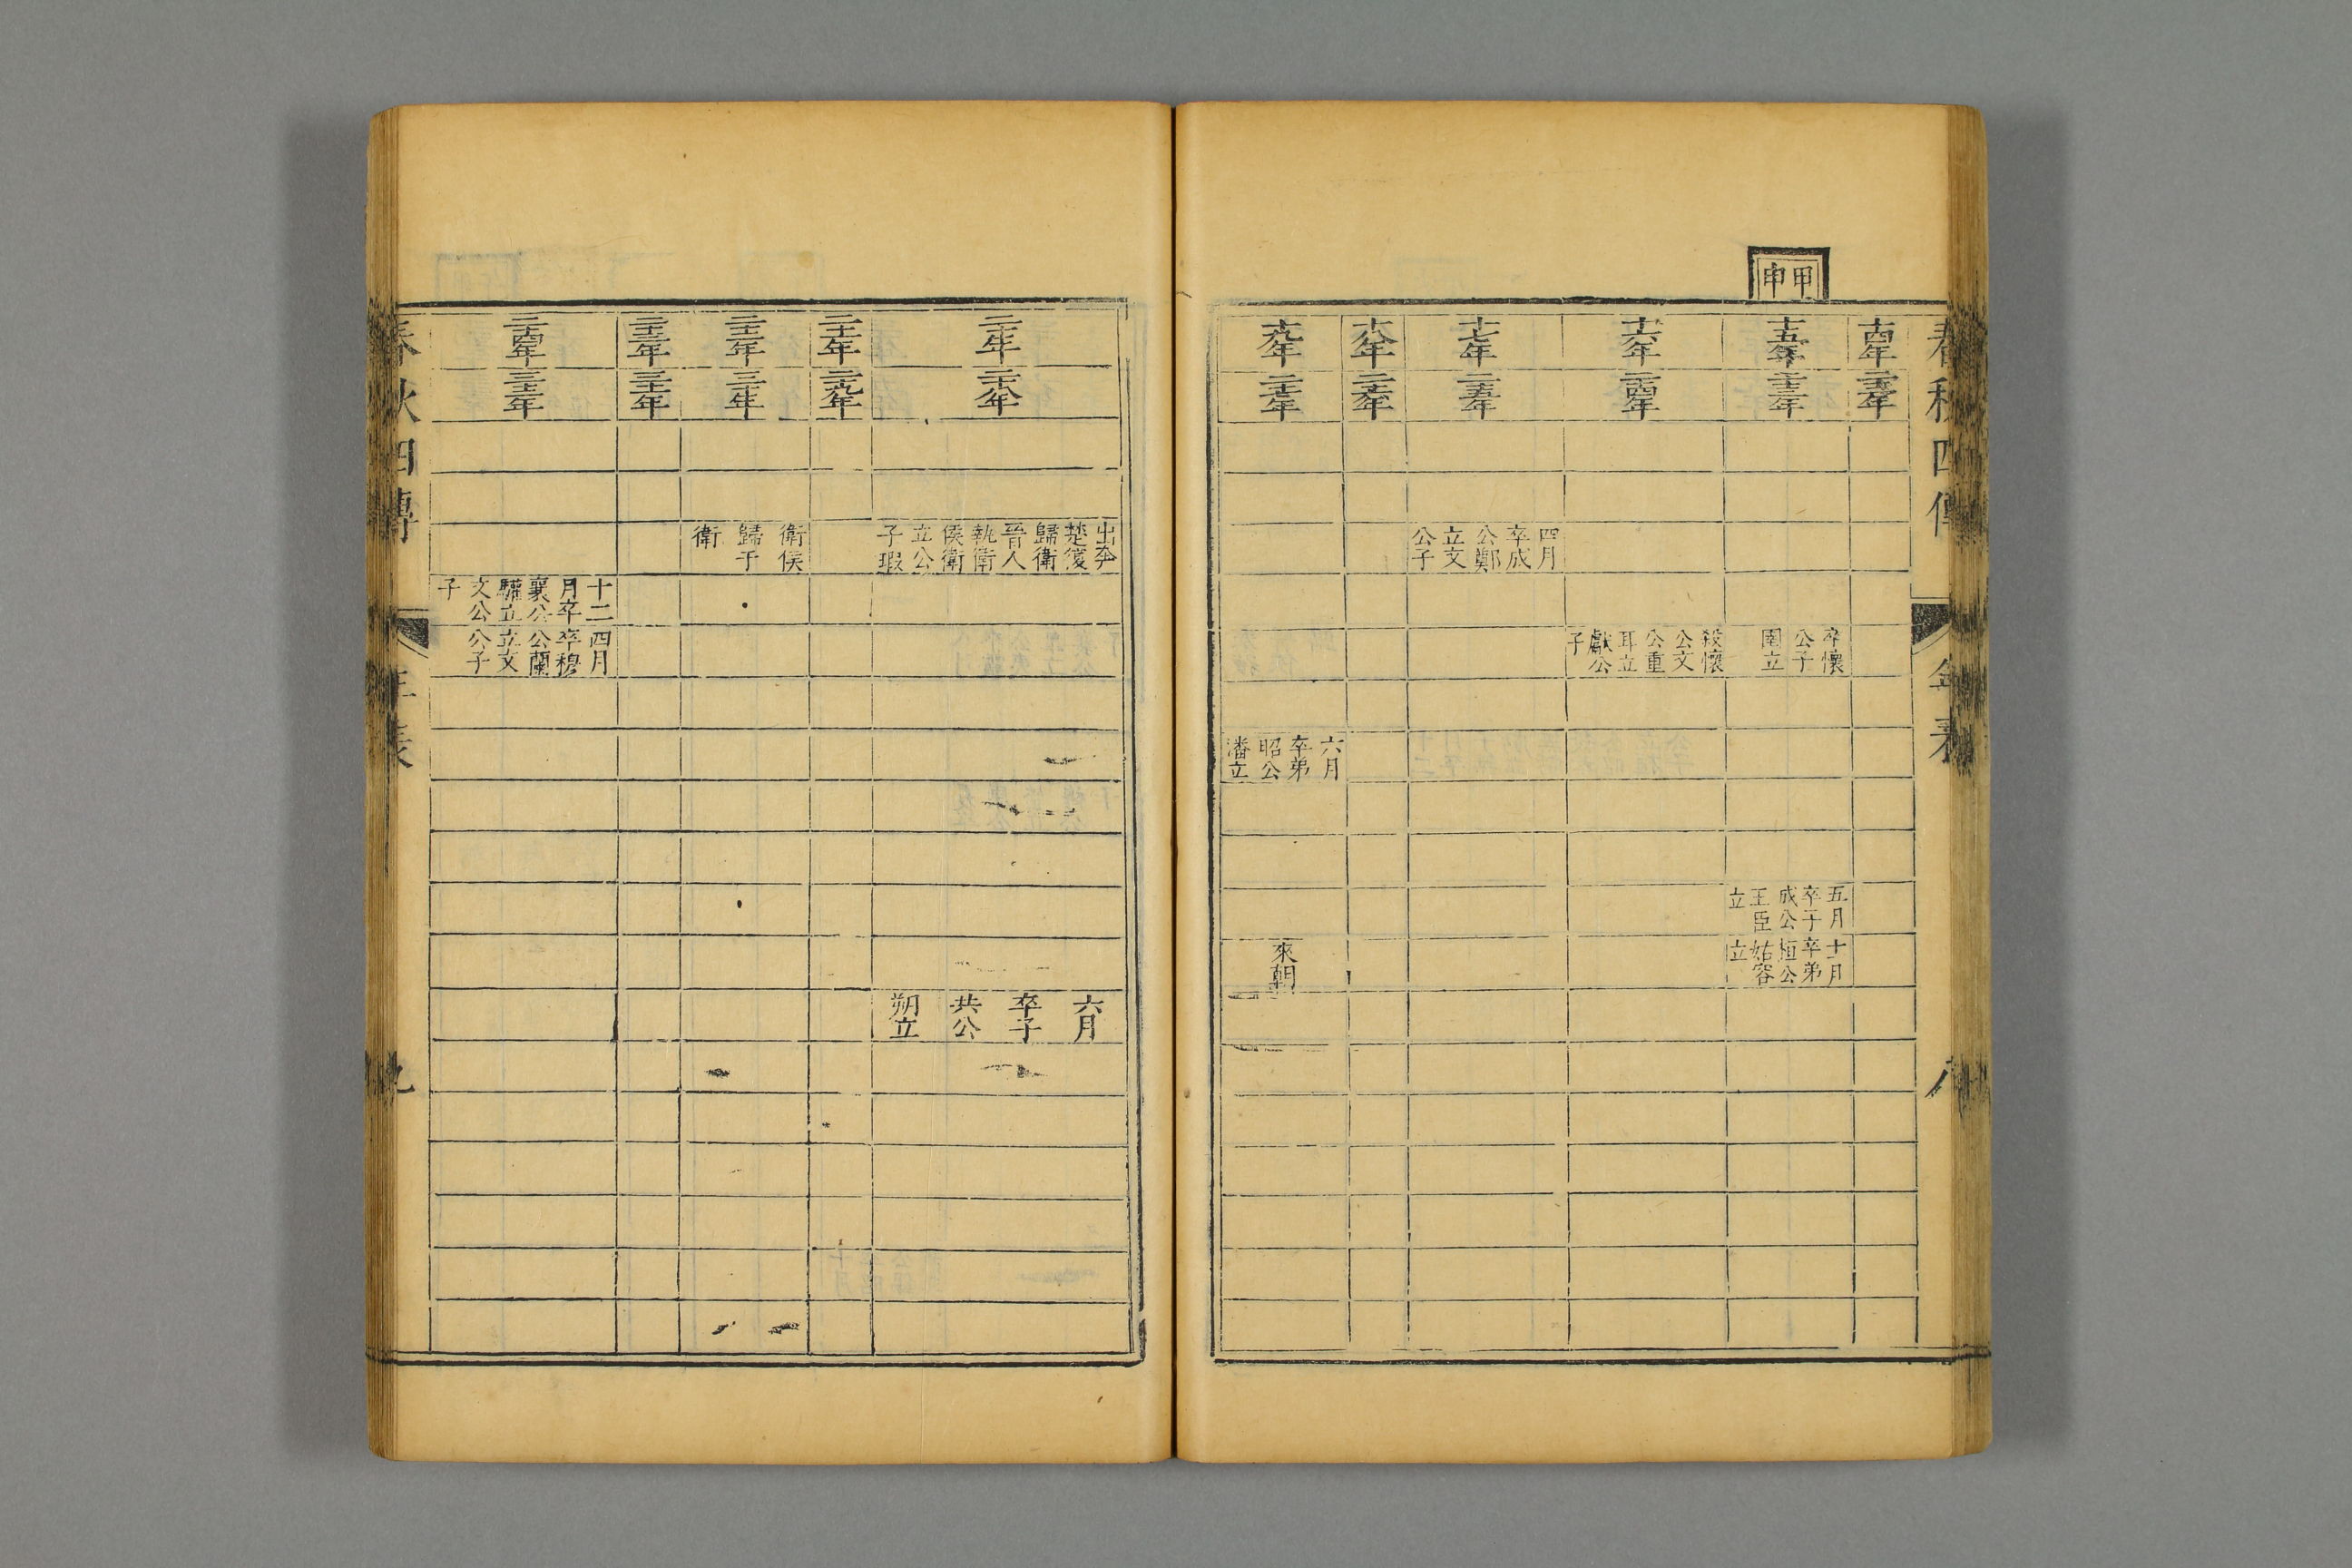 春秋四傳
年表
八
甲申
十四年
二十二年
十五年
二十三年
卒懷
公子
圉立
五月
卒子
成公
王臣
立
十一月
卒弟
桓公
姑容
立
十六年
二十四年
殺懷
公文
公重
耳立
獻公
子
十七年
二十五年
四月
卒成
公鄭
立文
公子
十八年
二十六年
十九年
二十七年
六月
卒弟
昭公
潘立
來朝
二十年
二十八年
出奔
楚復
歸衛
晉人
執衛
侯衛
立公
子瑕
六月
卒子
共公
朔立
二十一年
二十九年
二十二年
三十年
衛侯
歸于
衛
二十三年
三十一年
二十四年
三十二年
十二
月卒
襄公
驩立
文公
子
四月
卒穆
公蘭
立文
公子
春秋四傳
年表
九